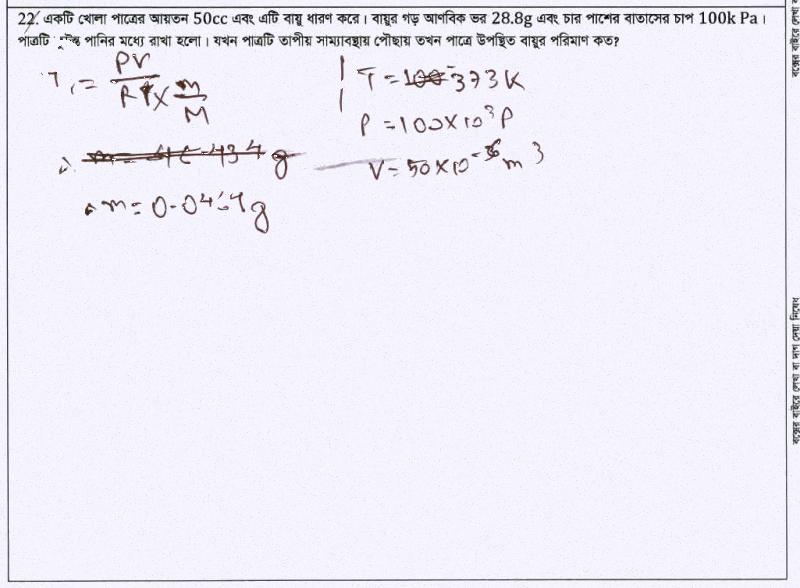 22. একটি খোলা পাত্রের আয়তন 50cc এবং এটি বায়ু ধারণ করে। বায়ুর গড় আণবিক ভর 28.8g এবং চার পাশের বাতাসের চাপ 100k Pa।
পাত্রটি পানির মধ্যে রাখা হলো। যখন পাত্রটি তাপীয় সাম্যাবস্থায় পৌছায় তখন পাত্রে উপস্থিত বায়ুর পরিমাণ কত?
= PV/RT × m/M
T = 373K
P = 100×10³P
V = 50×10⁻⁶m³
m = g
বক্সের বাইরে লেখা বা দাগ দেয়া নিষেধ